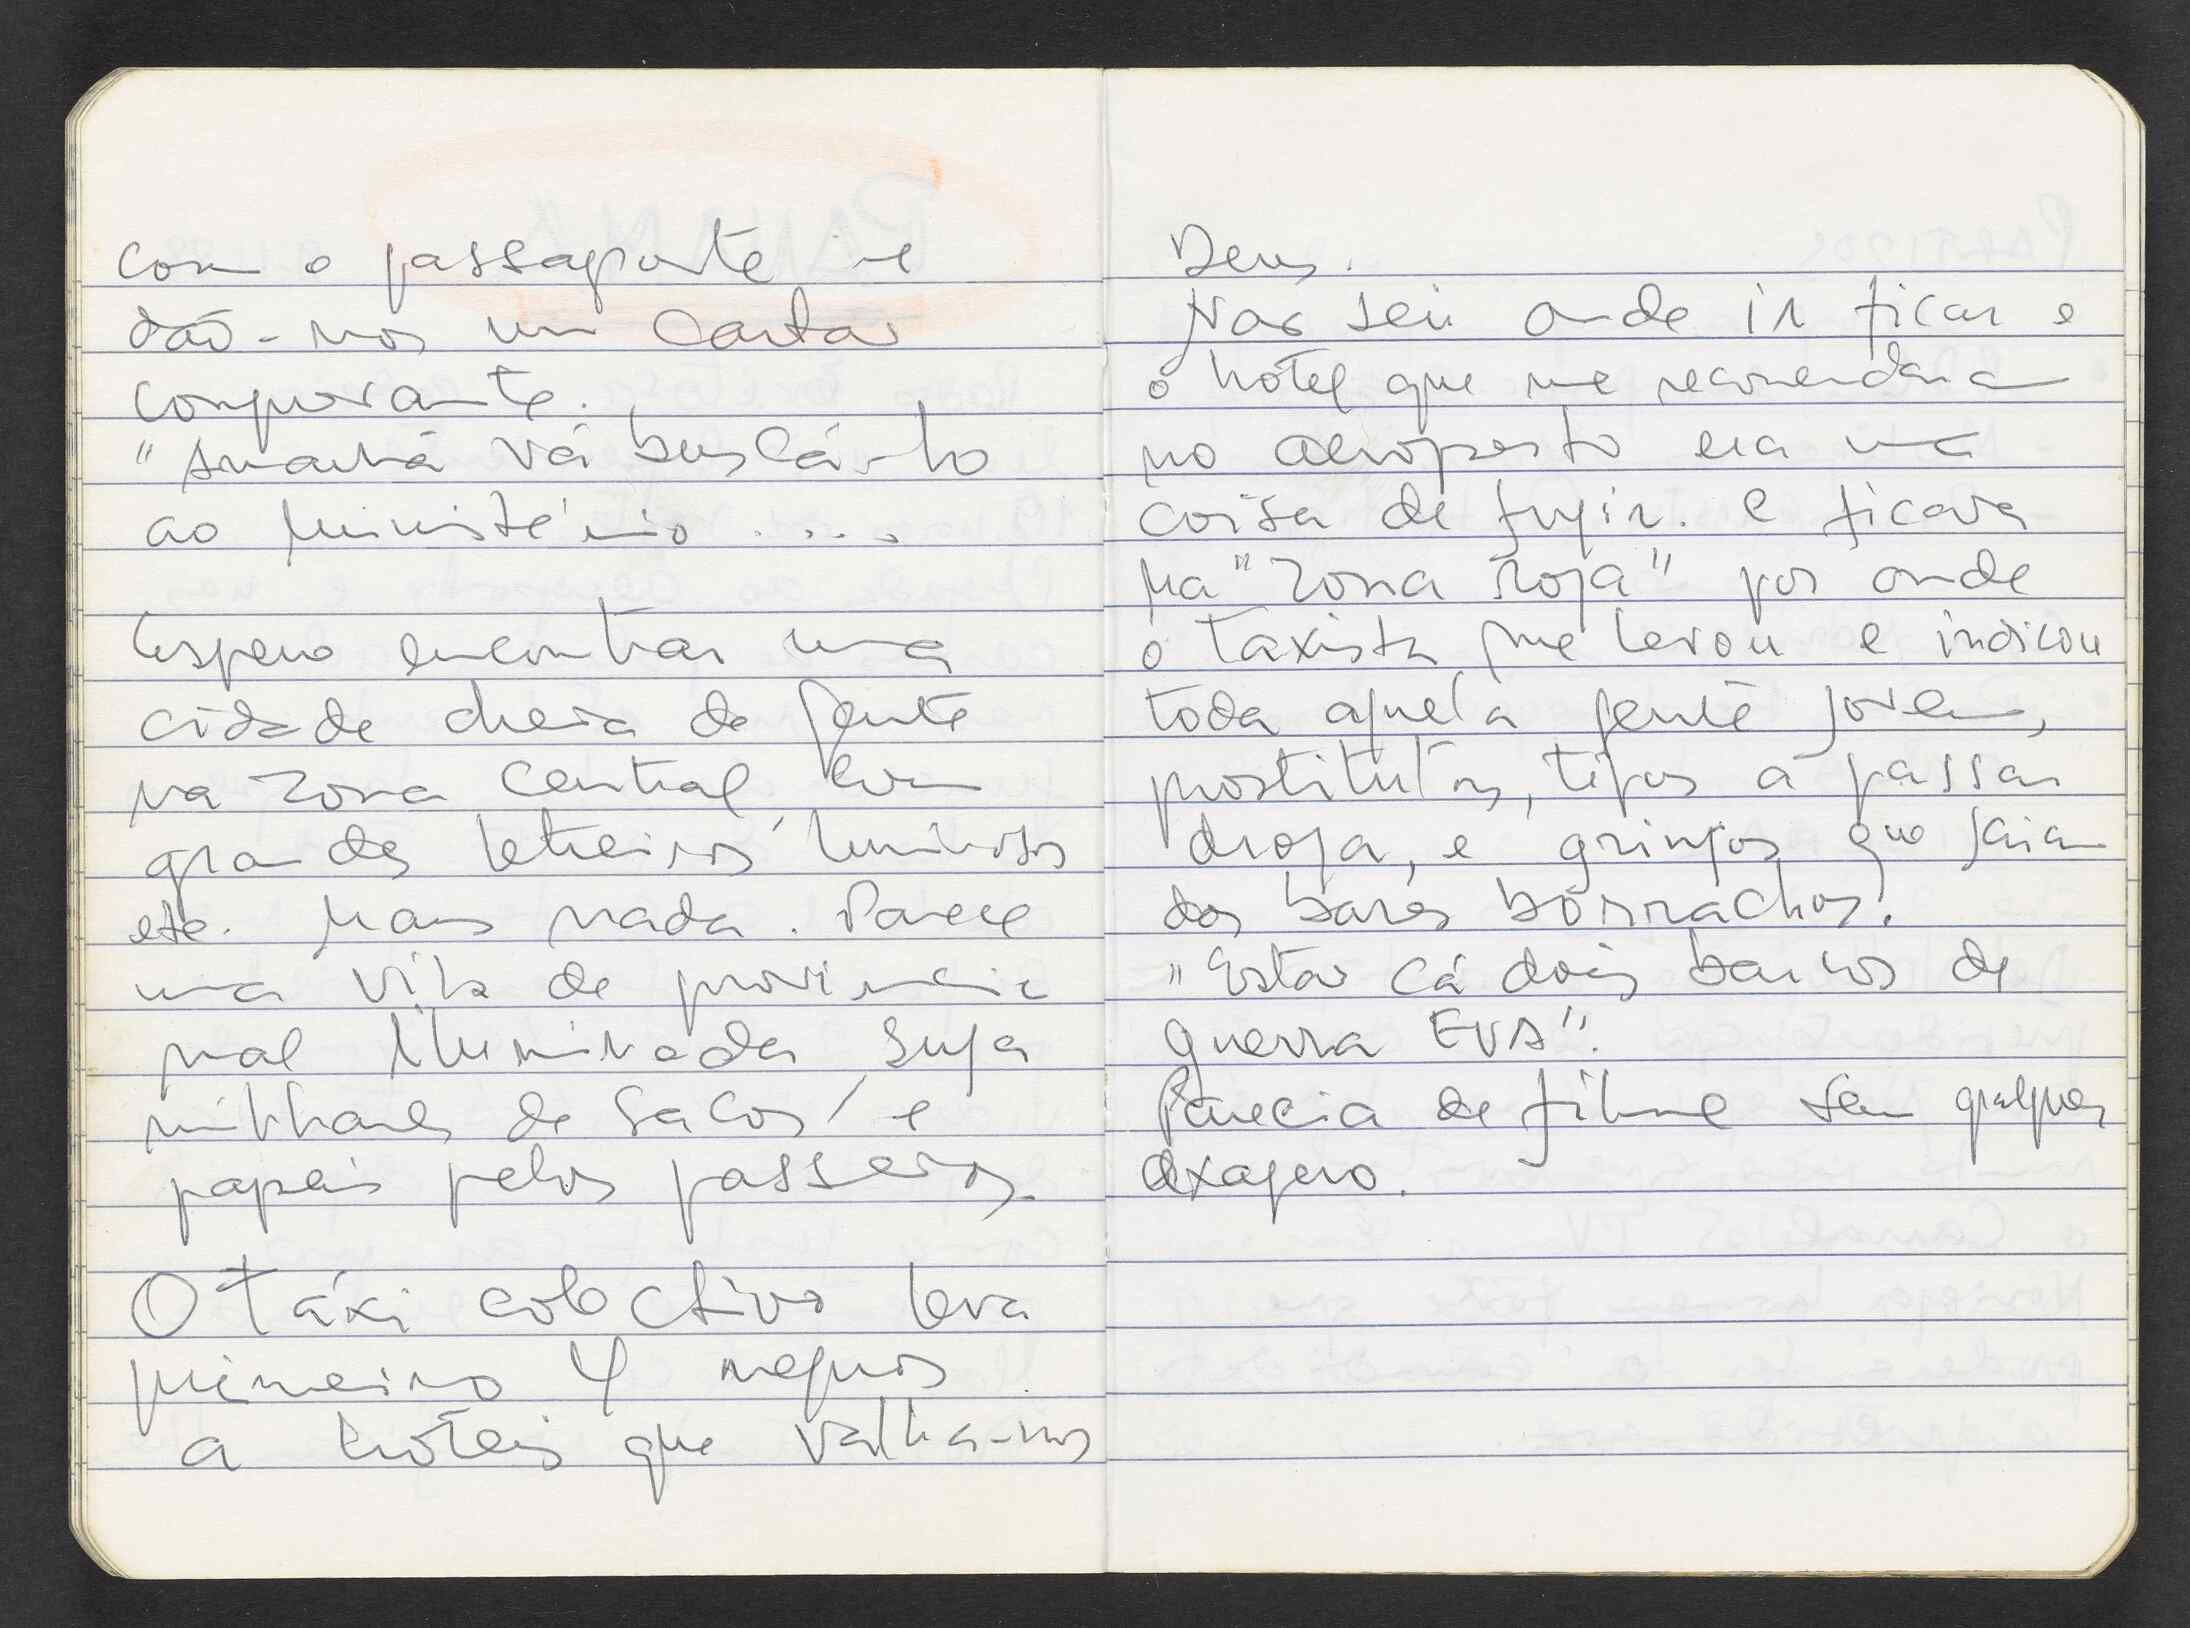 com o passaporte e
dão-nos um cartão
comprovante.
"Amanhã vá buscá-lo
ao Ministério....
Espero encontrar uma
cidade cheia de gente
na zona central com
grandes letreiros luminosos
etc. Mas nada. Parece
uma vila de província
mal iluminada suja
milhares de sacos e
papéis pelos passeios.
O táxi colectivo leva
primeiro 4 negros
a hotéis que valha-nos
Deus.
Não sei onde ir ficar e
o hotel que me recomendaram
no aeroporto era uma
coisa de fugir. e ficava
na "zona roja" por onde
o taxista me levou e indicou
toda aquela gente jovem,
prostitutas, tipos a passar
droga, e gringos que saiam
dos bares borrachos.
"Estão cá dois barcos de
guerra EUA".
Parecia de filme sem qualquer
exagero.
PANAMÁ
PARTIDOS